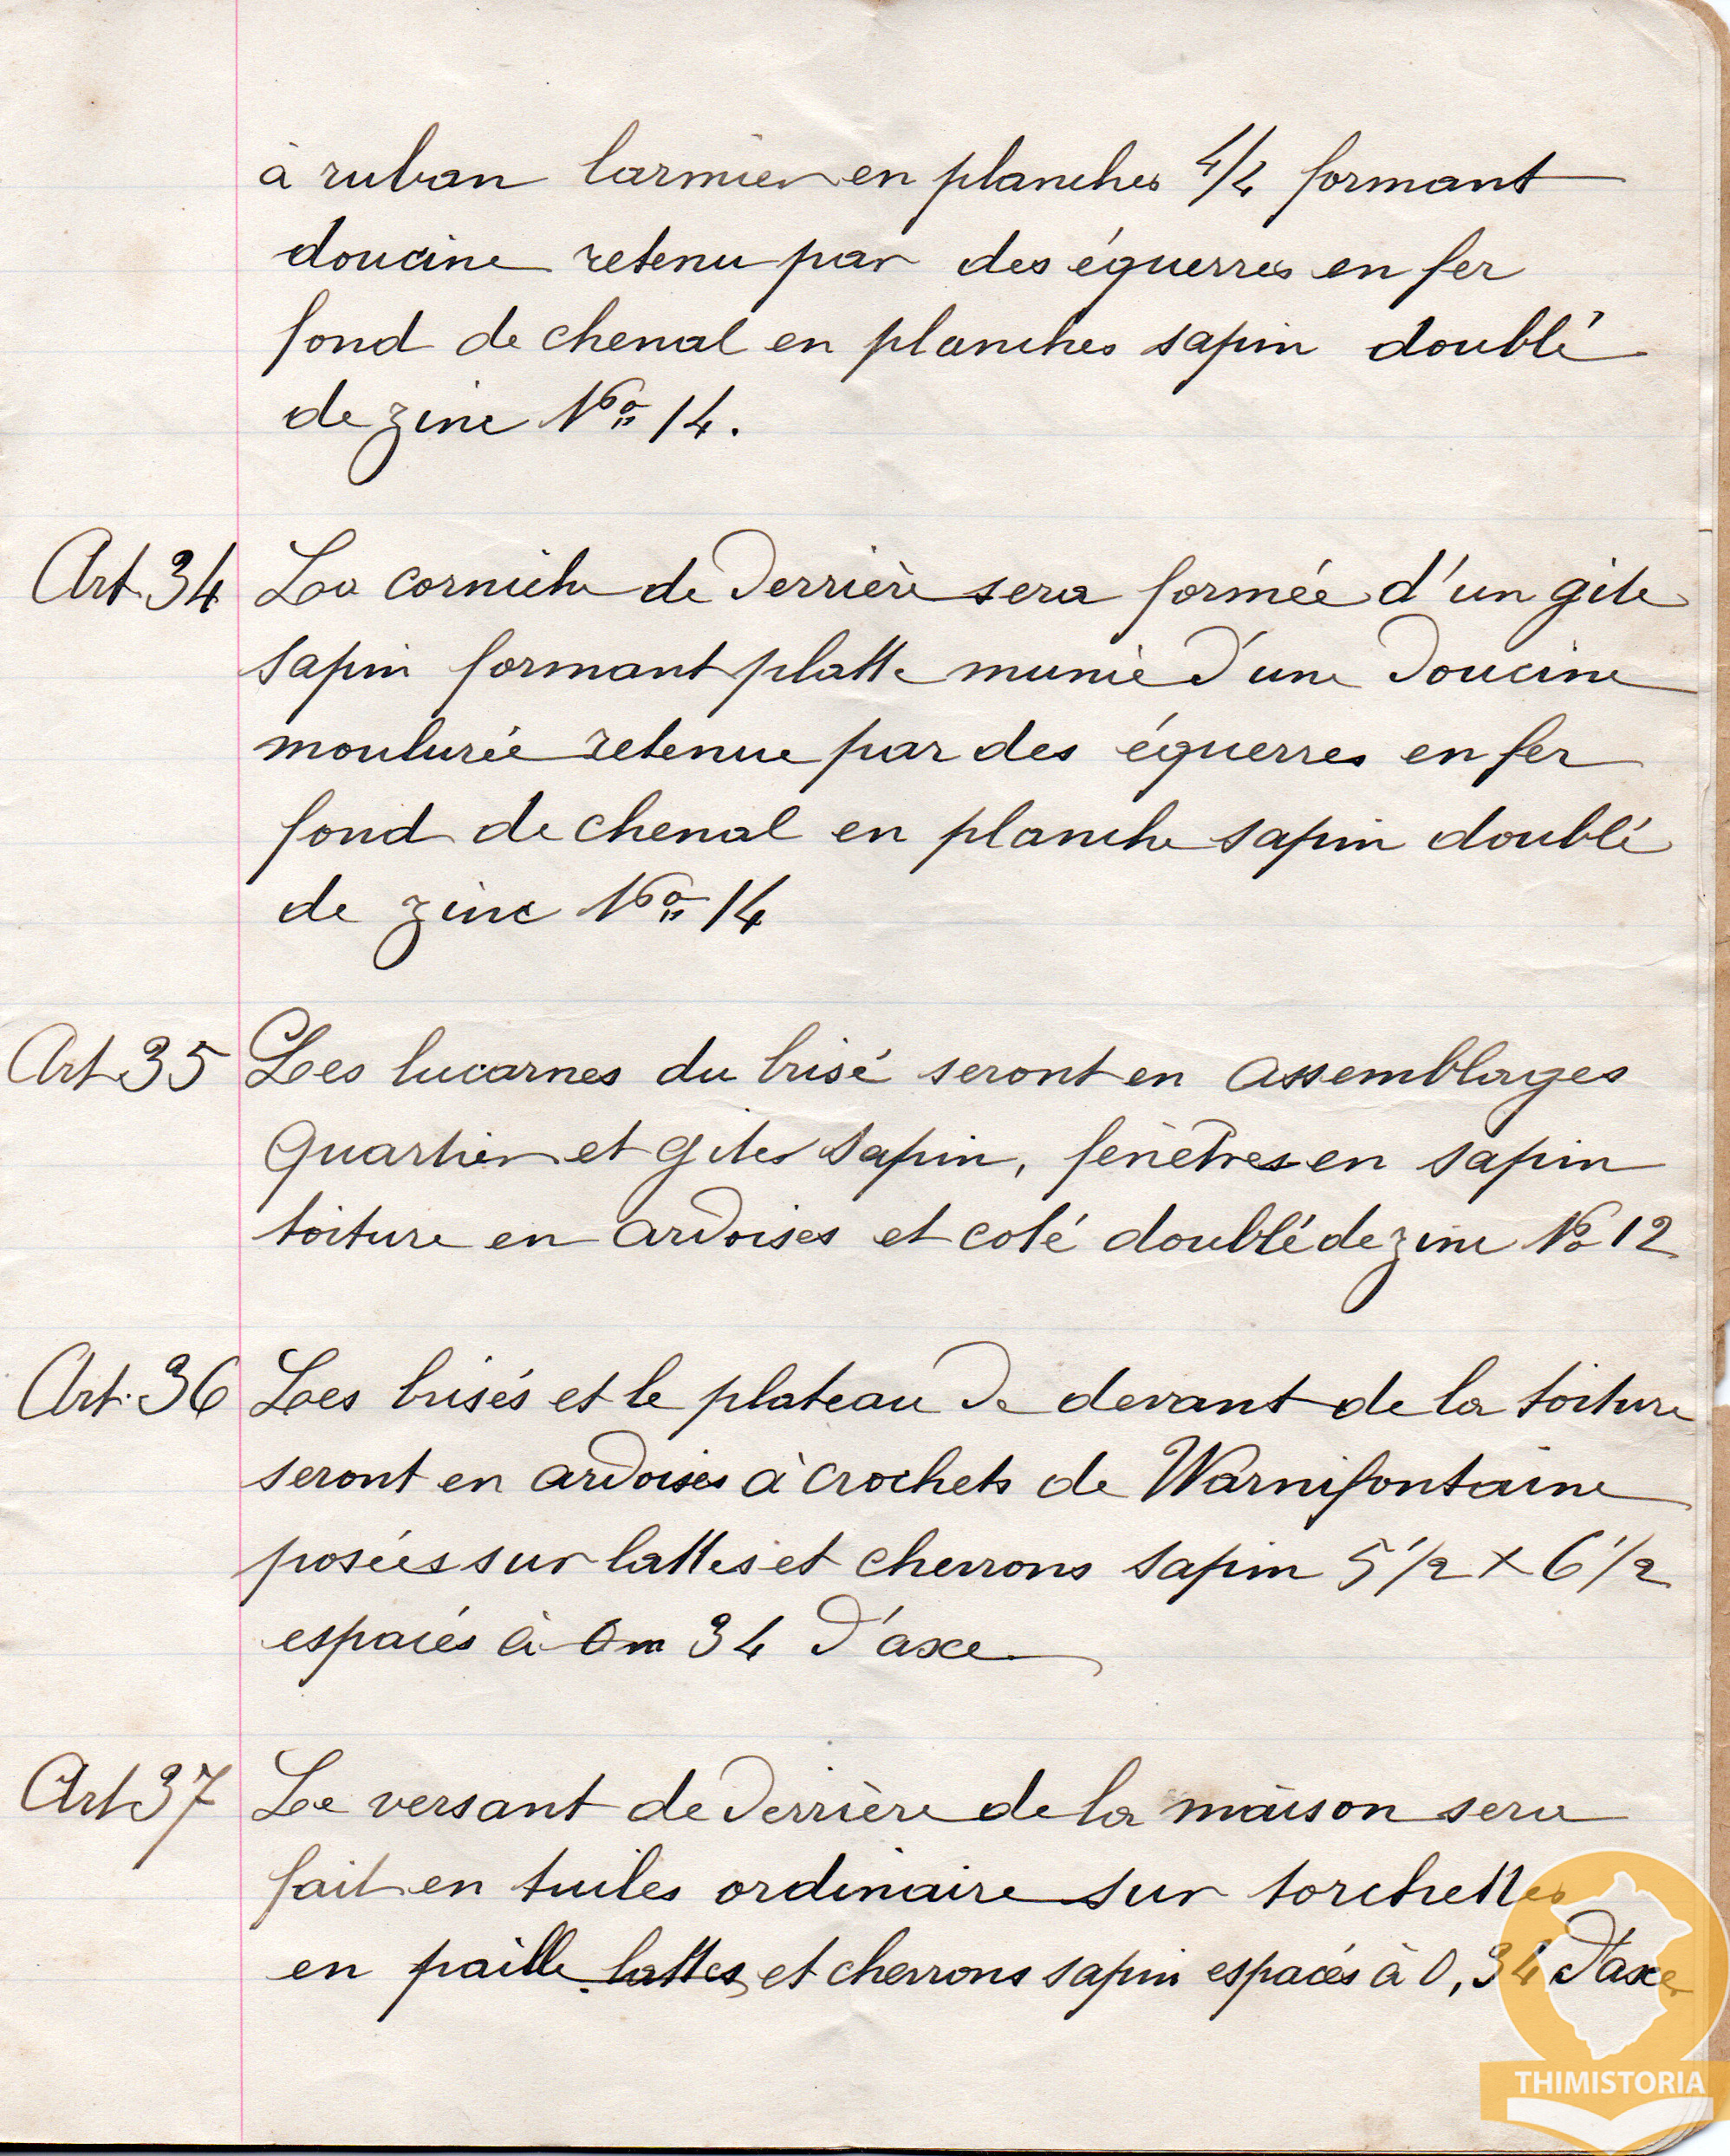 à ruban larmier en planches 4/4 formant
doucine retenu par des équerres en fer
fond de chenal en planches sapin doublé
de zinc No 14.
Art 34 La corniche de derrière sera formée d'un gite
sapin formant platte munie d'une doucine
moulurée retenue par des équerres en fer
fond de chenal en planche sapin doublé
de zinc No 14
Art 35 Les lucarnes du brisé seront en assemblages
Quartier et gites sapin, fenêtres en sapin
toiture en ardoises et coté doublé de zinc No 12
Art. 36 Les brisés et le plateau de devant de la toiture
seront en ardoises à crochets de Warnifontaine
posées sur lattes et cherrons sapin 5 1/2 x 6 1/2
espacés à 0m 34 d'axe
Art 37 Le versant de derrière de la maison sera
fait en tuiles ordinaire sur torchettes
en paille lattes et cherrons sapin espacés à 0,34 d'axe
THIMISTORIA